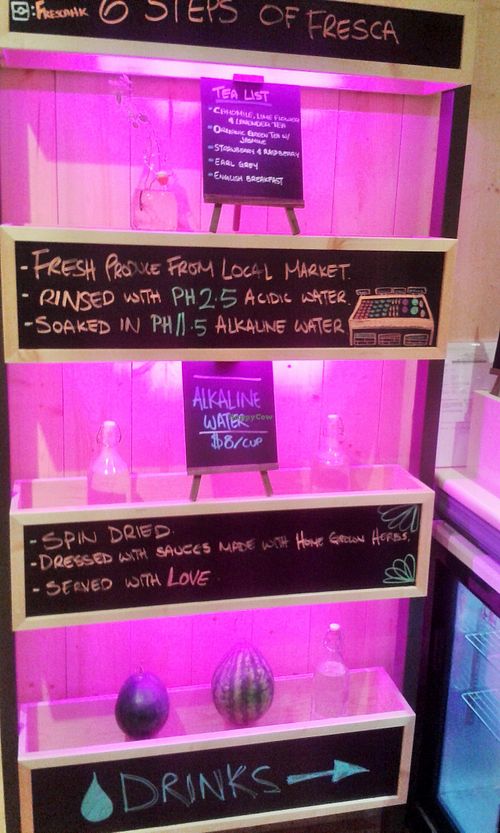 : FRESCAHK 6 STEPS OF FRESCA
TEA LIST
- CHAMOMILE, LIME FLOWER
& LAVENDER TEA
- ORGANIC GREEN TEA W/
JASMINE
- STRAWBERRY & RASPBERRY
- EARL GREY
- ENGLISH BREAKFAST
- FRESH PRODUCE FROM LOCAL MARKET.
- RINSED WITH PH 2.5 ACIDIC WATER.
- SOAKED IN PH 11.5 ALKALINE WATER
ALKALINE
WATER
$8/CUP
HappyCow
- SPIN DRIED.
- DRESSED WITH SAUCES MADE WITH HOME GROWN HERBS.
- SERVED WITH LOVE.
DRINKS